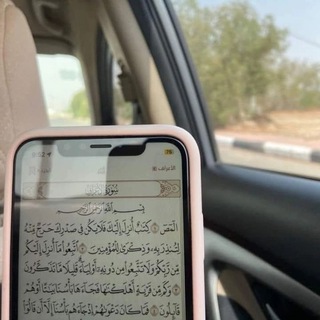 9:52
الأعراف
سورة الأعراف
بسم الله الرحمن الرحيم
الٓمٓصٓ ۝ كِتَٰبٌ أُنزِلَ إِلَيْكَ فَلَا يَكُن فِي صَدْرِكَ حَرَجٌ مِّنْهُ
لِتُنذِرَ بِهِۦ وَذِكْرَىٰ لِلْمُؤْمِنِينَ ۝ ٱتَّبِعُوا۟ مَآ أُنزِلَ إِلَيْكُم
مِّن رَّبِّكُمْ وَلَا تَتَّبِعُوا۟ مِن دُونِهِۦٓ أَوْلِيَآءَ ۗ قَلِيلًا مَّا تَذَكَّرُونَ
۝ وَكَم مِّن قَرْيَةٍ أَهْلَكْنَٰهَا فَجَآءَهَا بَأْسُنَا بَيَٰتًا أَوْ هُمْ
قَآئِلُونَ ۝ فَمَا كَانَ دَعْوَىٰهُمْ إِذْ جَآءَهُم بَأْسُنَآ إِلَّآ أَن قَالُوٓا۟